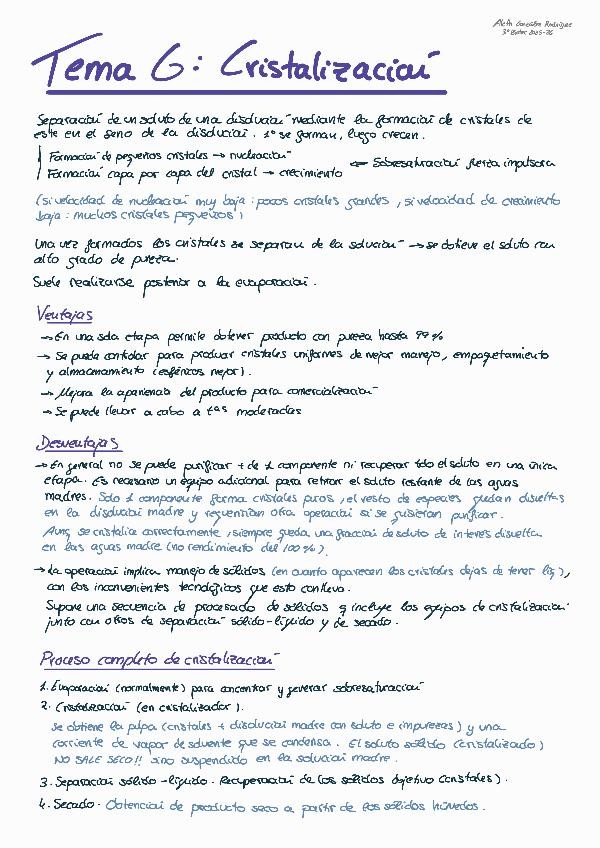 González Rodríguez
3º 2025-26
Tema 6: Cristalización
Separación de un soluto de una disolución mediante la formación de cristales de
este en el seno de la disolución. 1º se forman, luego crecen.
Formación de pequeños cristales → nucleación
Formación capa por capa del cristal → crecimiento
← Sobresaturación fuerza impulsora
(si velocidad de nucleación muy baja: pocos cristales grandes, si velocidad de crecimiento
baja: muchos cristales pequeños)
Una vez formados los cristales se separan de la solución → se obtiene el soluto con
alto grado de pureza.
Suele realizarse posterior a la evaporación.
Ventajas
→ En una sola etapa permite obtener producto con pureza hasta 99%
→ Se puede controlar para producir cristales uniformes de mejor manejo, empaquetamiento
y almacenamiento (esféricos mejor).
→ Mejora la apariencia del producto para comercialización
→ Se puede llevar a cabo a tas moderadas
Desventajas
→ En general no se puede purificar + de 1 componente ni recuperar todo el soluto en una única
etapa. Es necesario un equipo adicional para retirar el soluto restante de las aguas
madres. Solo 1 componente forma cristales puros, el resto de especies quedan disueltas
en la disolución madre y requerirían otra operación si se quisieran purificar.
Aunq se cristalice correctamente, siempre queda una fracción de soluto de interés disuelta
en las aguas madre (no rendimiento del 100%).
→ La operación implica manejo de sólidos (en cuanto aparecen los cristales dejas de tener liq),
con los inconvenientes tecnológicos que esto conlleva.
Supone una secuencia de procesado de sólidos q incluye los equipos de cristalización
junto con otros de separación sólido-líquido y de secado.
Proceso completo de cristalización
1. Evaporación (normalmente) para concentrar y generar sobresaturación
2. Cristalización (en cristalizador).
Se obtiene la pulpa (cristales + disolución madre con soluto e impurezas) y una
corriente de vapor de solvente que se condensa. El soluto sólido (cristalizado)
NO SALE SECO!! sino suspendido en la solución madre.
3. Separación sólido-líquido. Recuperación de los sólidos objetivo (cristales).
4. Secado. Obtención de producto seco a partir de los sólidos húmedos.